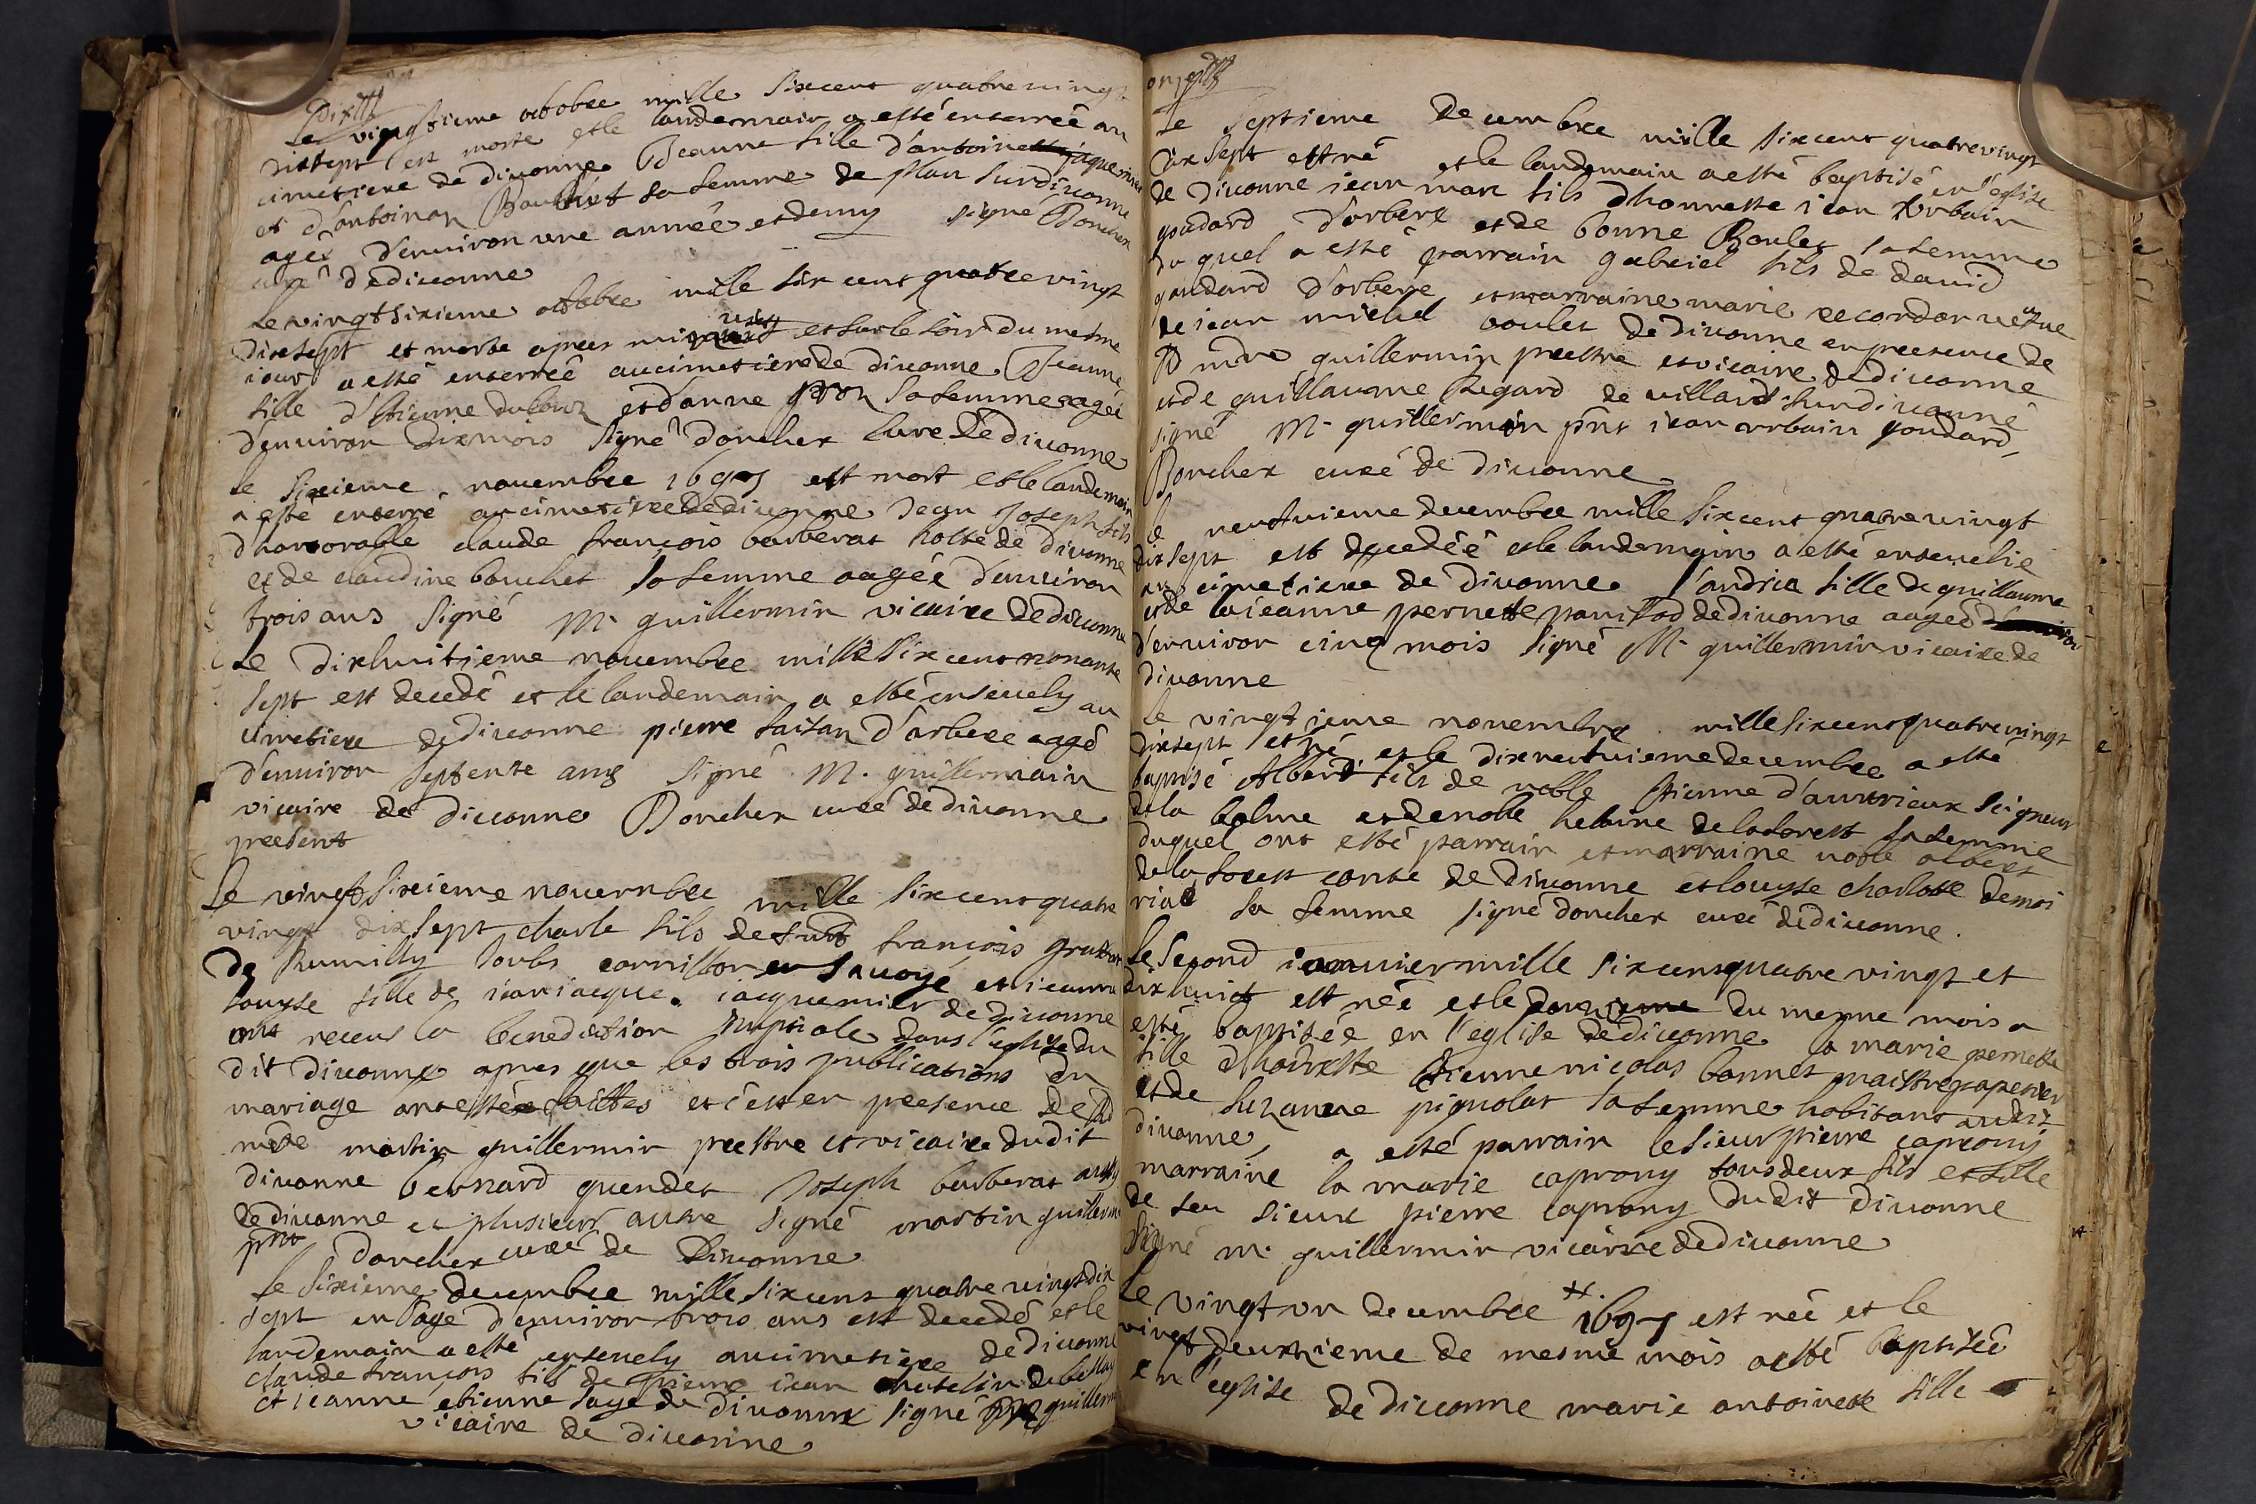 Dix
le vingtieme octobre mille sixcent quatrevingt
dixsept est morte et le landemain a esté enterrée au
cimetiere de divonne Jeanne fille d'antoine jaquemier
et d'antoina Bouchet sa femme de plan sur divonne
agée d'environ une année et demy signé Doncher
curé de divonne
Le vingtsixieme octobre mille six cent quatre vingt
dixsept et morte apres minuit et sur le soir du mesme
jour a esté enterrée au cimetiere de divonne Jeanne
fille d'Etienne dubout et d'anne sa femme agée
d'environ dixmois signé doncher curé de divonne
le sixieme novembre 1697 est mort et le landemain
a esté enterré au cimetiere de divonne Jean Joseph fils
dhonorable claude françois barberat hoste de divonne
et de claudine bouchet sa femme aagée d'environ
trois ans signé M. guillermin vicaire de divonne
Le dixhuitieme novembre mille sixcent nonante
sept est decedé et le landemain a esté ensevely au
cimetiere de divonne pierre d'arbere aagé
d'environ septente ans signé M. guillermain
vicaire de divonne Doncher curé de divonne
present
Le vingtsixieme novembre mille sixcent quatre
vingt dixsept charle fils de feu françois
de Rumilly soubs cornillon en Savoye et jeanne
louyse fille de jean jacque jacquemier de divonne
ont receus la benediction nuptiale dans l'eglise du
dit divonne apres que les trois publications du
mariage ont estée faittes et c'est en presence de
martin guillermin prestre et vicaire dudit
divonne bernard guendet Joseph barberat aussy
de divonne et plusieurs autre signé martin guillermin
pnt doncher curé de Divonne
le sixieme decembre mille sixcent quatre vingtdix
sept en l'age d'environ trois ans est decedé et le
landemain a esté ensevely au cimetiere de divonne
claude françois fils de pierre jean
et jeanne etienne sage de divonne signé guillermin
vicaire de divonne
onz
le septieme decembre mille sixcent quatrevingt
dixsept est né et le landemain a esté baptisé en l'eglise
de divonne jean marc fils dhonneste jean Urbain
goudard d'arbere et de bonne Boulet sa femme
duquel a esté parrain gabriel fils de david
goudard d'arbere et marraine marie recordon vefve
de jean michel boulet de divonne en presence de
guillermin prestre et vicaire de divonne
et de guillaume Regard de villard sur divonne
signé M. guillermin pnt jean urbain goudard
Doncher curé de divonne
le neufvieme decembre mille sixcent quatrevingt
dixsept est decedéé et le landemain a esté ensevelie
au cimetiere de divonne l'andria fille de guillaume
et de la jeanne pernette de divonne aagée
d'environ cinq mois signé M. guillermin vicaire de
divonne
le vingtieme novembre mille sixcent quatrevingt
dixsept est né et le dixneufvieme decembre a esté
baptisé Albert fils de noble Etienne d'auvrieux seigneur
de la balme et de noble helaine de la forest sa femme
duquel ont esté parrain et marraine noble albert
de la forest conte de divonne et louyse charlotte demoi
riac sa femme signé doncher curé de divonne.
le second janvier mille sixcent quatre vingt et
dixhuict est née et le du mesme mois a
esté baptisée en l'eglise de divonne la marie pernette
fille dhonneste Etienne nicolas bonnet maistre papetier
et de suzanne pignolat sa femme habitant audit
divonne a esté parrain le sieur pierre caprony
marraine la marie caprony tous deux fils et fille
de feu sieur pierre caprony dudit divonne
Signé M. guillermin vicaire de divonne
Le vingt un decembre 1697 est née et le
vingt deuxieme de mesme mois a esté baptisée
en l'eglise de divonne marie antoinette fille